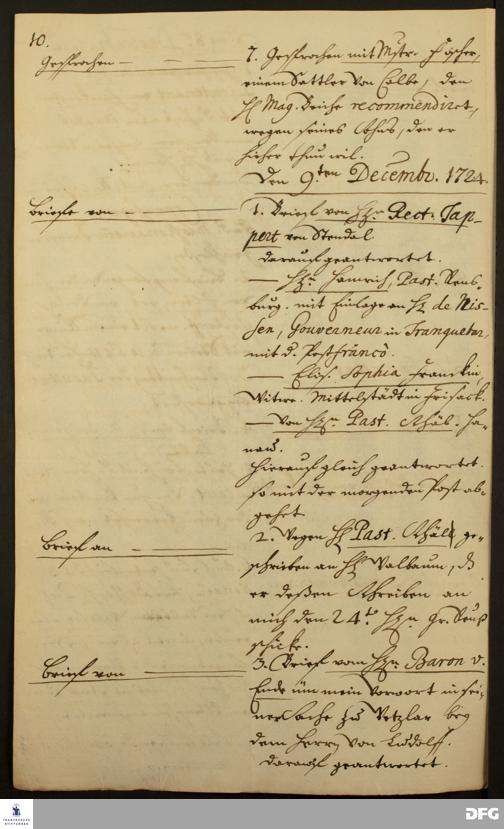 10.
Gesprochen — 7. Gesprochen mit Mstr. Fischer,
einem Sattler von Calbe, den
H. Mag. Reiche recommendiret,
wegen seines Sohns, den er
hieher thun wil.
Den 9.ten Decembr. 1724.
Briefe von — 1. Brief von Hrn Rect. Tap-
pert von Stendal
darauf geantwortet.
— Hrn Hamrich, Past. Rens-
burg. mit Einlage an H. de Nis-
sen, Gouverneur in Tranquebar,
mit d. Post franco.
— Elis. Sophia Franckin
Witwe. Mittelstädt in Frisack.
— Von Hrn Past. Ha-
nau.
Hierauf gleich geantwortet.
so mit der morgenden Post ab-
gehet.
Brief an — 2. Wegen H. Past. ge-
schrieben an H. Walbaum, dß
er deßen Schreiben an
mich den 24.ten Hrn Gr. Reuß
schicke.
Brief von — 3. Brief vom Hrn Baron v.
Ende um mein Vorwort in sei-
ner Sache zu Wetzlar bey
dem Herrn von Ludolff.
darauf geantwortet.
FRANCKESCHE
STIFTUNGEN
DFG